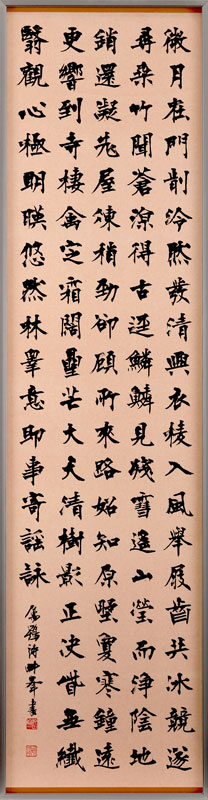 微月在門前泠然發清興衣棱入風舉屐齒共冰競遂
尋桑竹聞蒼涼得古逕鱗鱗見殘雪遥山瑩而淨陰地
銷還凝茆屋凍稍勁卻顧所來路始知原壄夐寒鐘遠
更響到寺棲禽定霜闊曐芒大天清樹影正決眥無纖
翳觀心極明暎悠然林皋意即事寄謡詠
厲鶚詩峰書